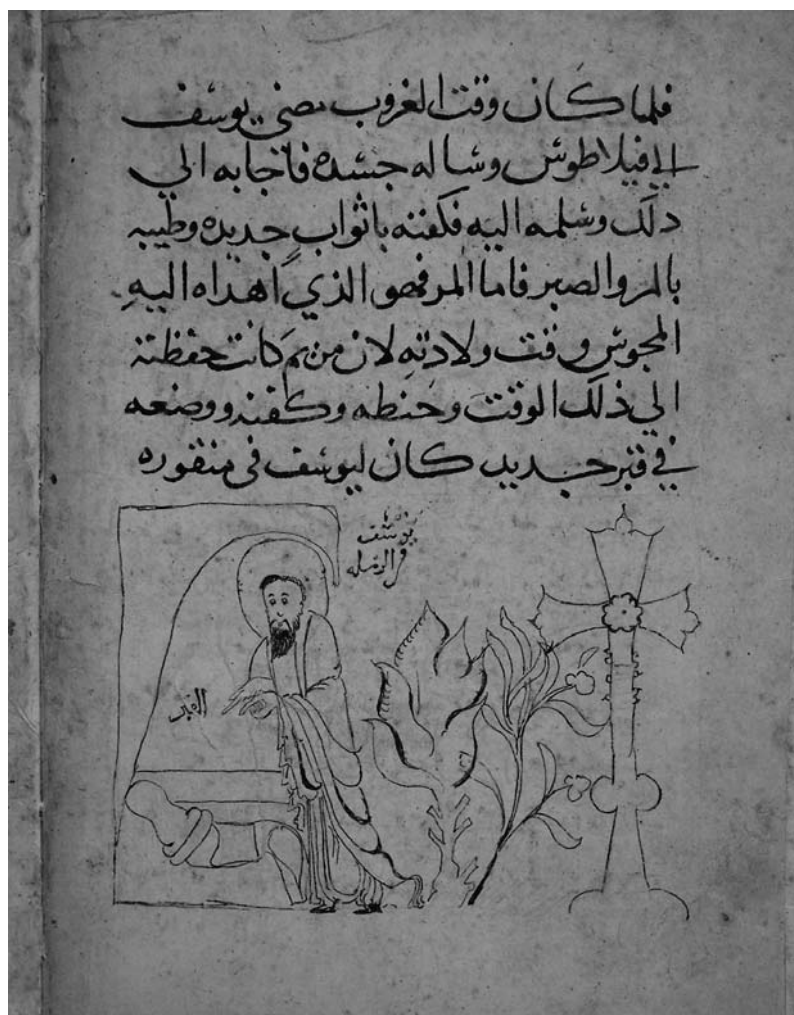 فلما كان وقت الغروب مضى يوسف
الي فيلاطوس وساله جسده فاجابه الي
دلك وسلمه اليه فكفنه باثواب جديده وطيبه
بالمر والصبر فاما المر فهو الذي اهداه اليه
المجوس وقت ولادته لان مريم كانت حفظته
الي ذلك الوقت وحنطه وكفنه ووضعه
في قبر جديد كان ليوسف في منقوره
يوسف
القبر